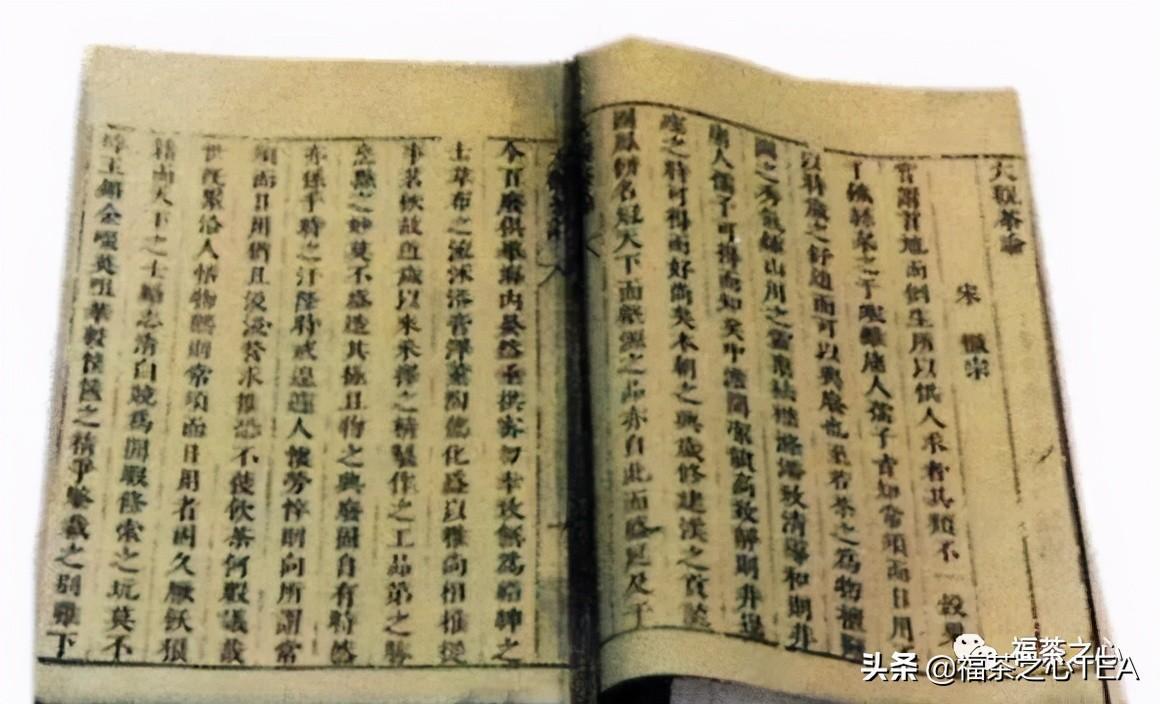 大觀茶論
宋 徽宗
嘗謂首地而倒生所以供人求者其類不一穀粟
于飢絲枲之于寒雖庸人孺子皆知常須而日用
以時歲之舒迫而可以興廢也至若茶之為物擅甌
閩之秀氣鍾山川之靈稟祛襟滌滯致清導和則非
庸人孺子可得而知矣中澹間潔韻高致靜則非遑
遽之時可得而好尚矣本朝之興歲修建溪之貢龍
團鳳餅名冠天下而壑源之品亦自此而盛延及于
今百廢俱舉海內晏然垂拱密勿幸致無為縉紳之
士韋布之流沐浴膏澤薰陶德化盛以雅尚相推從
事茗飲故近歲以來采擇之精製作之工品第之勝
烹點之妙莫不盛造其極且物之興廢固自有時然
亦係乎時之汙隆時或遑遽人懷勞悴則向所謂常
須而日用猶且汲汲營求惟恐不獲飲茶何暇議哉
世既累洽人恬物熙則常須而日用者固久厭飫狼
籍而天下之士勵志清白競為閒暇修索之玩莫不
碎玉鏘金啜英咀華較篋笥之精爭鑒裁之別雖下
福茶之心
头条 @福茶之心TEA